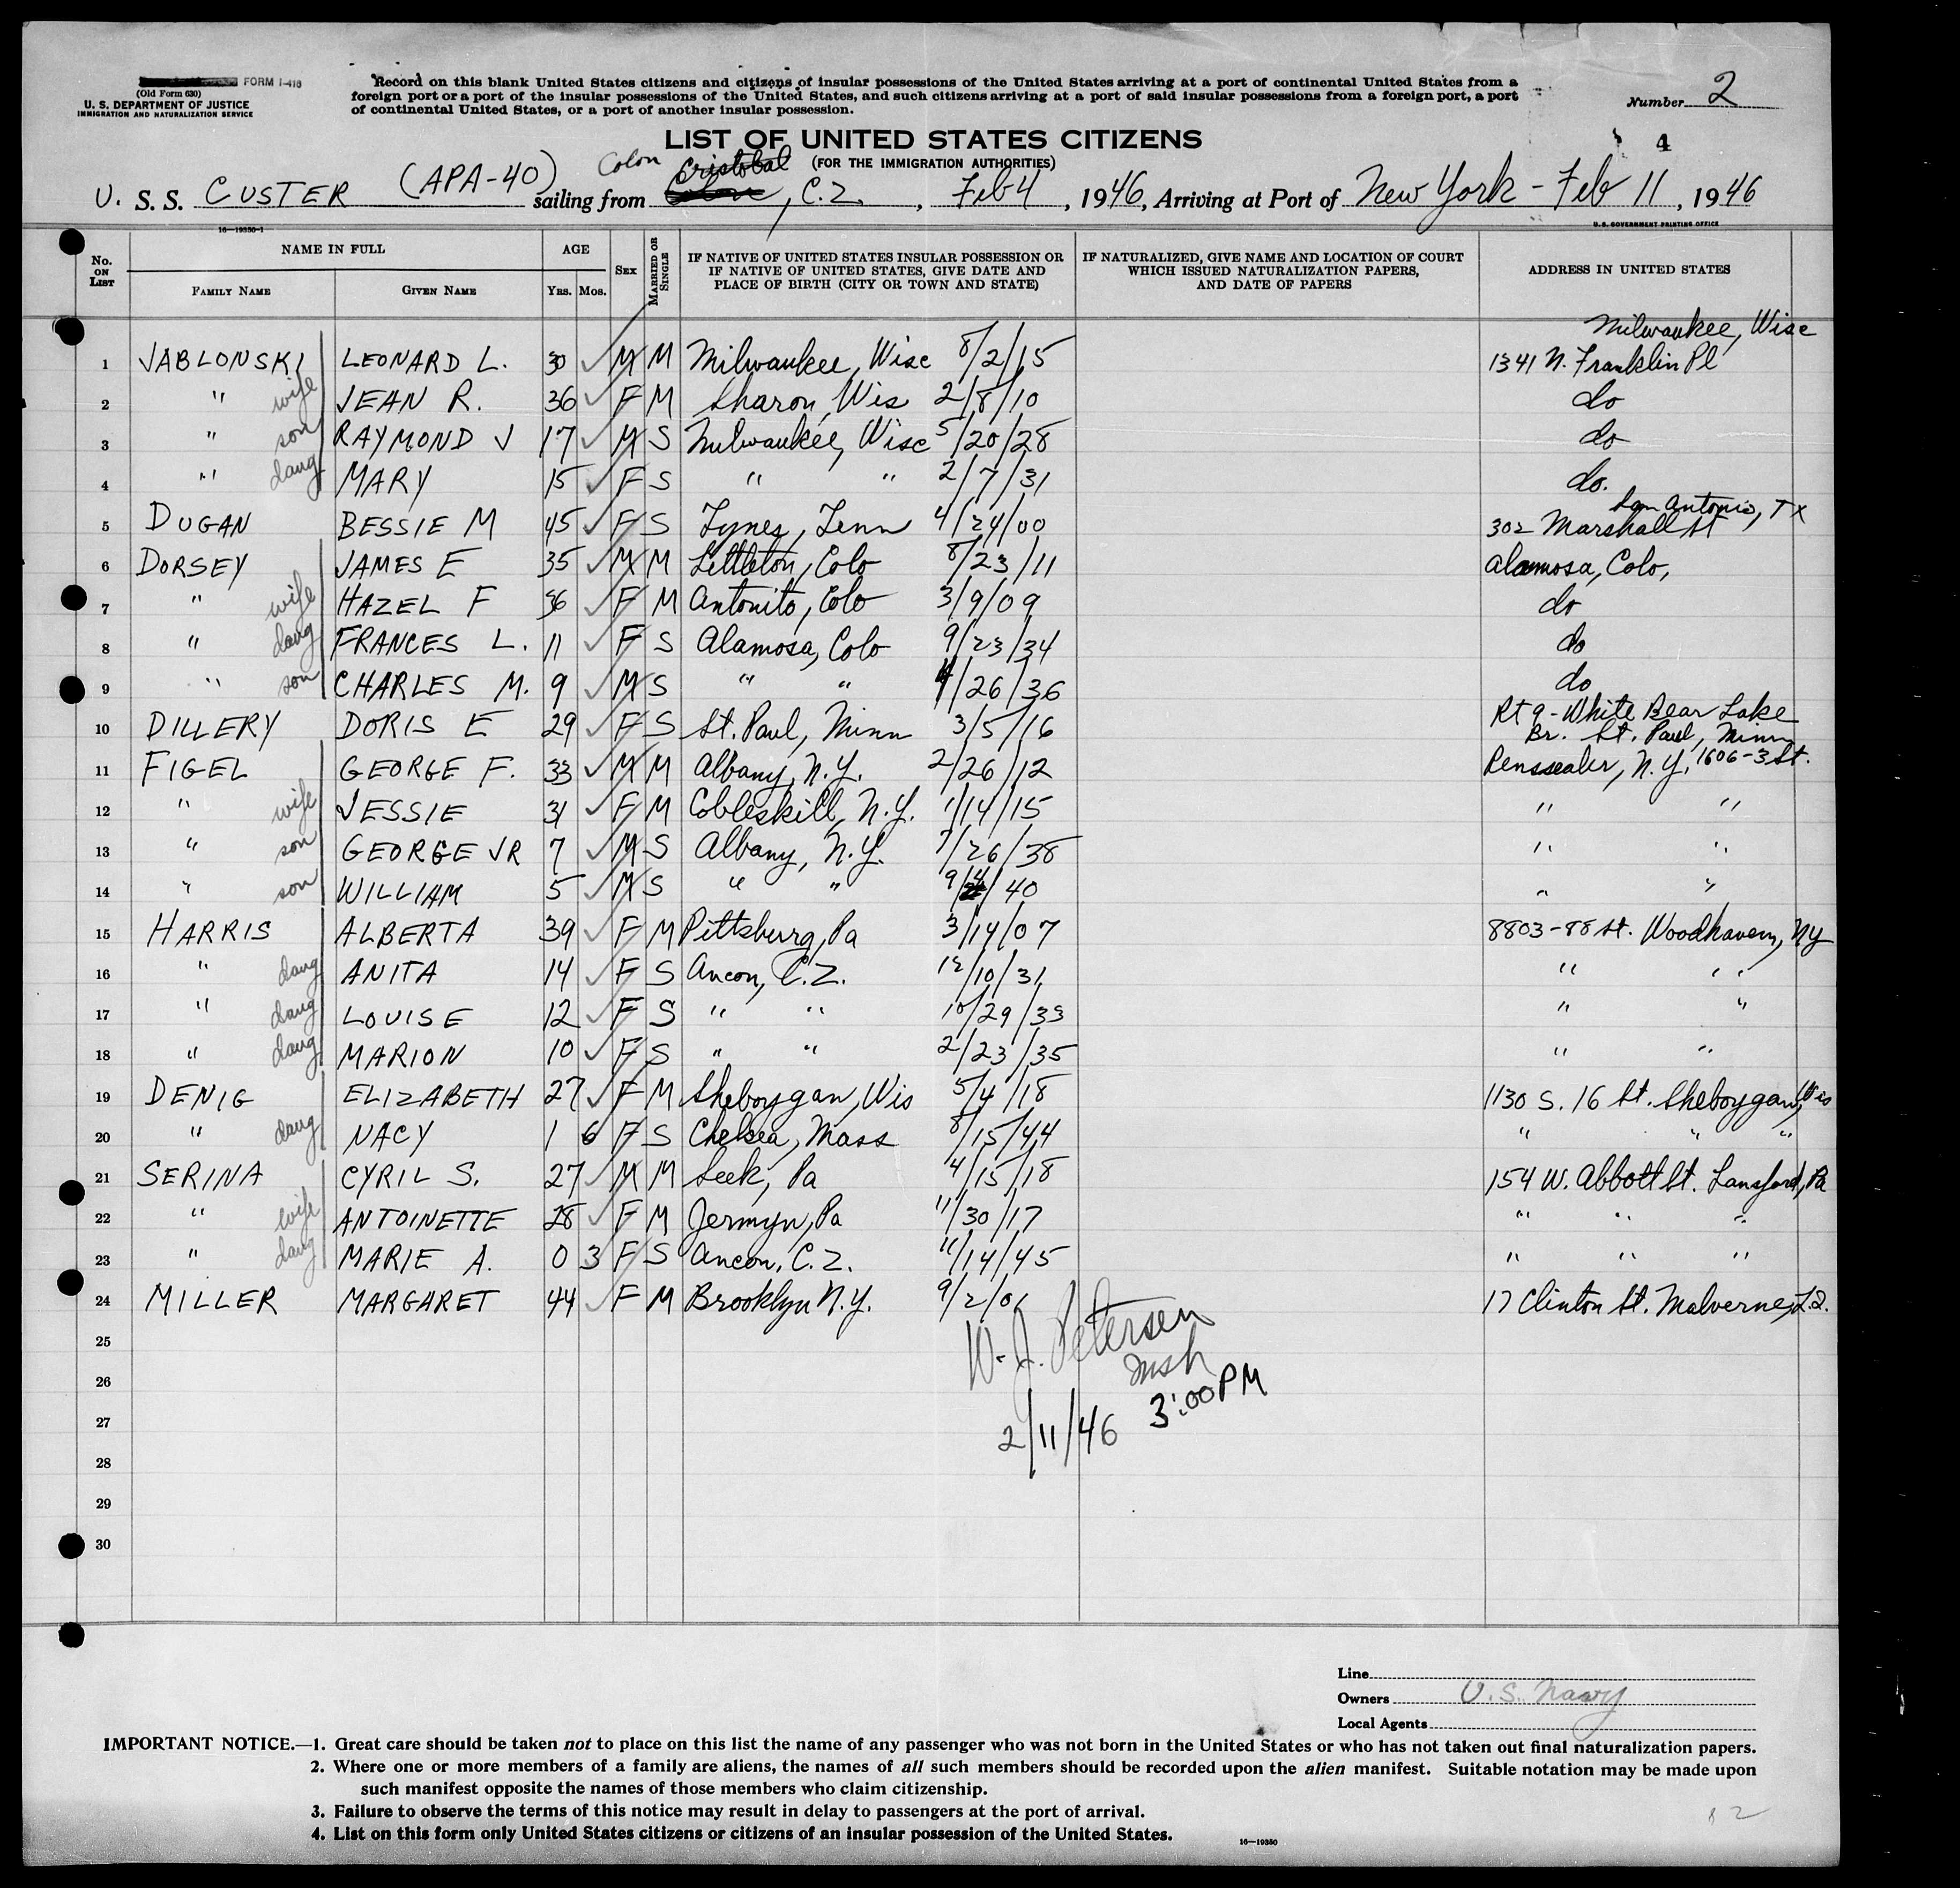 FORM I-418
(Old Form 630)
U. S. DEPARTMENT OF JUSTICE
IMMIGRATION AND NATURALIZATION SERVICE
Record on this blank United States citizens and citizens of insular possessions of the United States arriving at a port of continental United States from a
foreign port or a port of the insular possessions of the United States, and such citizens arriving at a port of said insular possessions from a foreign port, a port
of continental United States, or a port of another insular possession.
Number 2
LIST OF UNITED STATES CITIZENS
4
(FOR THE IMMIGRATION AUTHORITIES)
Colon Cristobal
U. S. S. CUSTER (APA-40) sailing from , C.Z. , Feb 4 , 1946, Arriving at Port of New York - Feb 11 , 1946
16—19350-1
U. S. GOVERNMENT PRINTING OFFICE
No. ON LIST NAME IN FULL FAMILY NAME GIVEN NAME AGE YRS. MOS. SEX MARRIED OR SINGLE IF NATIVE OF UNITED STATES INSULAR POSSESSION OR IF NATIVE OF UNITED STATES, GIVE DATE AND PLACE OF BIRTH (CITY OR TOWN AND STATE) IF NATURALIZED, GIVE NAME AND LOCATION OF COURT WHICH ISSUED NATURALIZATION PAPERS, AND DATE OF PAPERS ADDRESS IN UNITED STATES
Milwaukee, Wisc
1 JABLONSKI LEONARD L. 30 M M Milwaukee, Wisc 8/2/15 1341 N. Franklin Pl
2 " wife JEAN R. 36 F M Sharon, Wis 2/8/10 do
3 " son RAYMOND J 17 M S Milwaukee, Wisc 5/20/28 do
4 " daug MARY 15 F S " " 2/7/31 do.
San Antonio, TX
5 DUGAN BESSIE M 45 F S Tynes, Tenn 4/24/00 302 Marshall St
6 DORSEY JAMES E 35 M M Littleton, Colo 8/23/11 Alamosa, Colo,
7 " wife HAZEL F 36 F M Antonito, Colo 3/9/09 do
8 " daug FRANCES L. 11 F S Alamosa, Colo 9/23/34 do
9 " son CHARLES M. 9 M S " " /26/36 do
Rt 9 - White Bear Lake
10 DILLERY DORIS E 29 F S St. Paul, Minn 3/5/16 Br. St. Paul, Minn
11 FIGEL GEORGE F. 33 M M Albany, N.Y. 2/26/12 Renssealer, N.Y. 1606-3 St.
12 " wife JESSIE 31 F M Cobleskill, N.Y. 1/14/15 " "
13 " son GEORGE JR 7 M S Albany, N.Y. 7/26/38 " "
14 " son WILLIAM 5 M S " " 9/14/40 " "
15 HARRIS ALBERTA 39 F M Pittsburg, Pa 3/14/07 8803-88 St. Woodhaven, NY
16 " daug ANITA 14 F S Ancon, C.Z. 12/10/31 " "
17 " daug LOUISE 12 F S " " 10/29/33 " "
18 " daug MARION 10 F S " " 2/23/35 " "
19 DENIG ELIZABETH 27 F M Sheboygan, Wis 5/4/18 1130 S. 16 St. Sheboygan, Wis
20 " daug NACY 1 6 F S Chelsea, Mass 8/15/44 " " "
21 SERINA CYRIL S. 27 M M Seek, Pa 4/15/18 154 W. Abbott St. Lansford, Pa
22 " wife ANTOINETTE 28 F M Jermyn, Pa 11/30/17 " " "
23 " daug MARIE A. 0 3 F S Ancon, C.Z. 11/14/45 " " "
24 MILLER MARGARET 44 F M Brooklyn N.Y. 9/2/01 17 Clinton St. Malverne, L.I.
25
W. J. Petersen
26
Insp
3:00 PM
27
2/11/46
28
29
30
Line
Owners U.S. Navy
Local Agents
IMPORTANT NOTICE.—1. Great care should be taken not to place on this list the name of any passenger who was not born in the United States or who has not taken out final naturalization papers.
2. Where one or more members of a family are aliens, the names of all such members should be recorded upon the alien manifest. Suitable notation may be made upon
such manifest opposite the names of those members who claim citizenship.
3. Failure to observe the terms of this notice may result in delay to passengers at the port of arrival.
4. List on this form only United States citizens or citizens of an insular possession of the United States.
16—19350